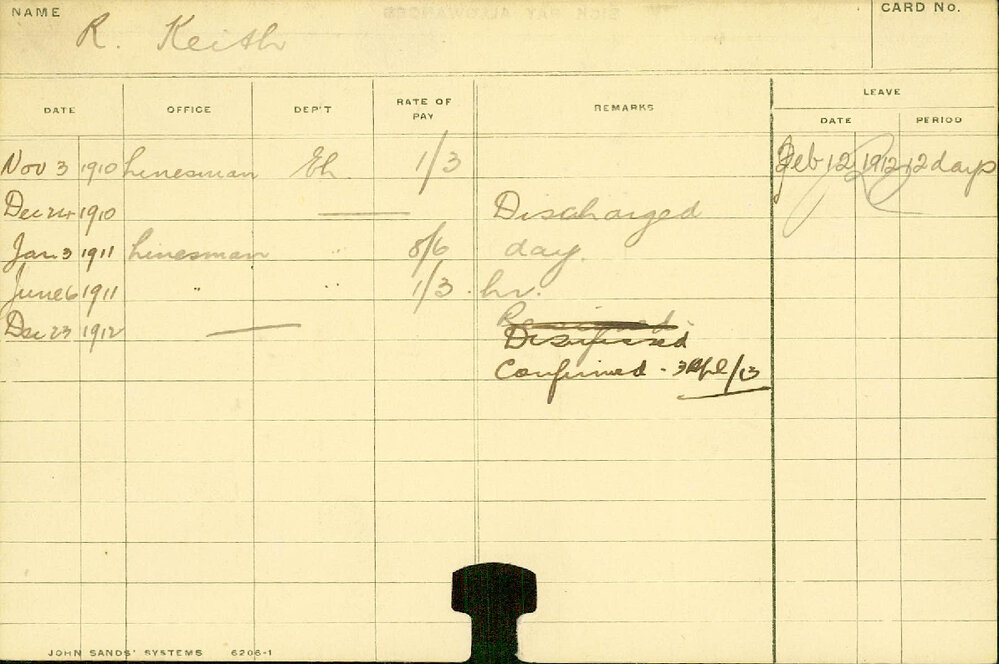 NAME R. Keith CARD No.
DATE OFFICE DEP'T RATE OF PAY REMARKS LEAVE
DATE PERIOD
Nov 3 1910 Linesman Eh. 1/3 Feb 12 1912 12 days
Dec 24 1910 — Discharged
Jan 3 1911 Linesman " 8/6 day.
June 6 1911 " " 1/3 . hr.
Dec 23 1912 — Resigned.
Dismissed
Confirmed - 3 Apl/13
JOHN SANDS' SYSTEMS 6206-1